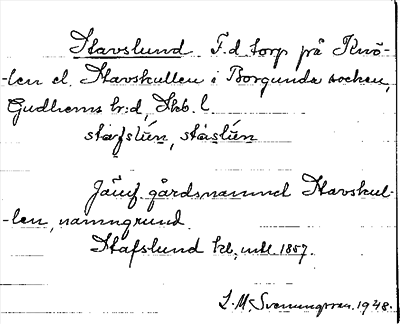 Stavslund F.d torp på Knö-
-len el. Stavskullen i Borgunda socken,
Gudhems h:d, Skb. l
stafslún, stáslún
Jämf. gårdsnamnet Stavskul-
-len, namngrund.
Stafslund kb, utl. 1857.
L. M. Svenungsson. 1948.